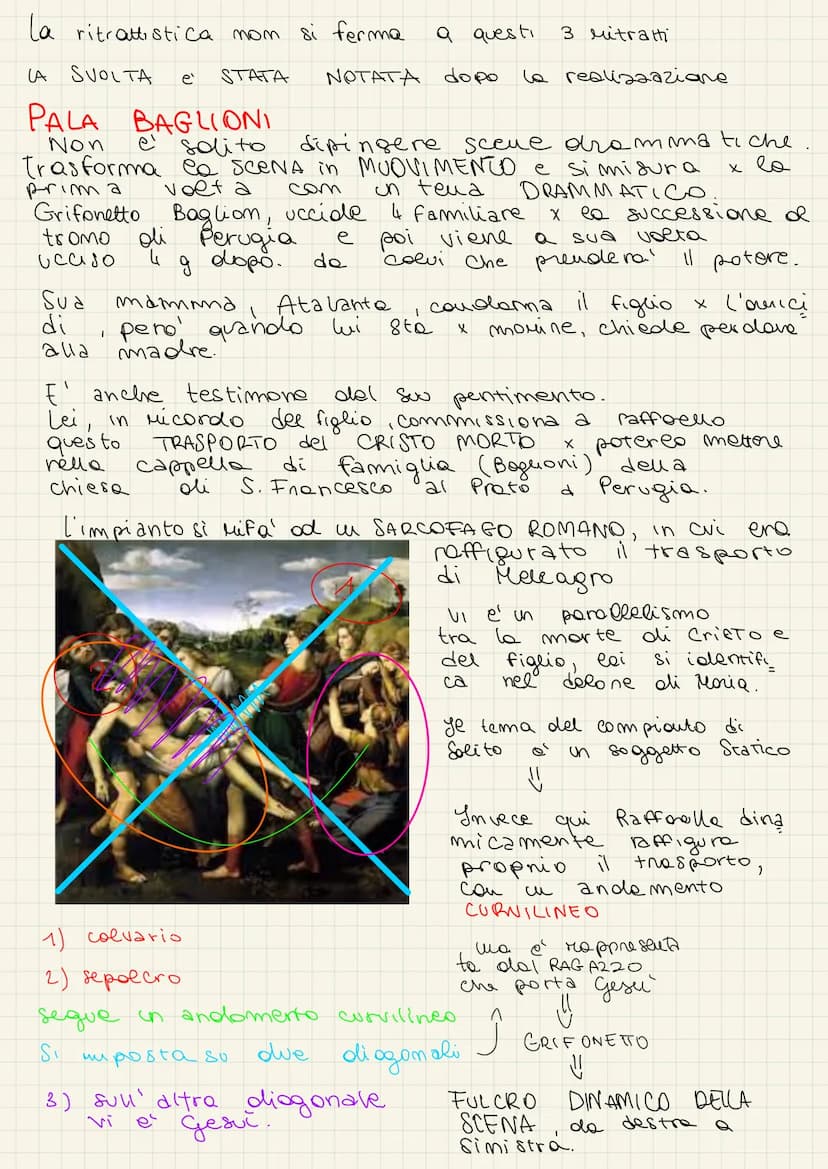 La ritrattistica non si ferma a questi 3 ritratti
LA SVOLTA e' STATA NOTATA dopo la realizzazione
PALA BAGLIONI
Non e' solito dipingere scene drammatiche.
Trasforma la SCENA in MUOVIMENTO e si misura x la
prima volta con un tema DRAMMATICO.
Grifonetto Baglioni, uccide 4 familiare x la successione al
trono di Perugia e poi viene a sua volta
ucciso 4 g dopo. da colui che prendera' il potere.
Sua mamma, Atalanta, condanna il figlio x l'omici
di, pero' quando lui sta x morire, chiede perdono
alla madre.
E' anche testimone del suo pentimento.
Lei, in ricordo del figlio, commissiona a raffaello
questo TRASPORTO del CRISTO MORTO x poterlo mettere
nella cappella di famiglia (Baglioni) della
chiesa di S. Francesco al Prato a Perugia.
L'impianto si rifa' ad un SARCOFAGO ROMANO, in cui era
raffigurato il trasporto
di Meleagro
Vi e' un parallelismo
tra la morte di Cristo e
del figlio, lei si identifi
ca nel dolore di Maria.
Il tema del compianto di
solito e' un soggetto statico
⇓
Invece qui Raffaello dina
micamente raffigura
proprio il trasporto,
con un andamento
CURVILINEO
1
2
1) calvario
2) sepolcro
segue un andamento curvilineo
Si imposta su due diagonali
3) sull'altra diagonale
vi e' Gesu'.
una e' rappresenta
ta dal RAGAZZO
che porta Gesu'
⇓
GRIFONETTO
⇓
FULCRO DINAMICO DELLA
SCENA, da destra a
sinistra.